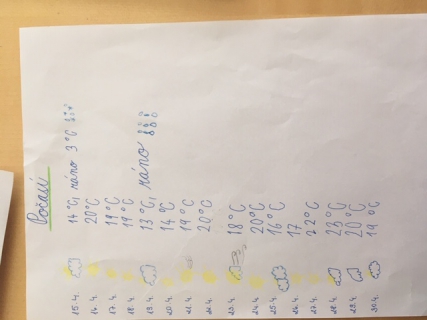 Počasí
15.4. 14°C, ráno 3°C
14.4. 20°C
17.4. 19°C
18.4. 19°C
19.4. 13°C, ráno
20.4. 14°C
21.4. 19°C
22.4. 20°C
23.4. 18°C
24.4. 20°C
25.4. 16°C
26.4. 17
27.4. 22°C
28.4. 23°C
29.4. 20°C
30.4. 19°C